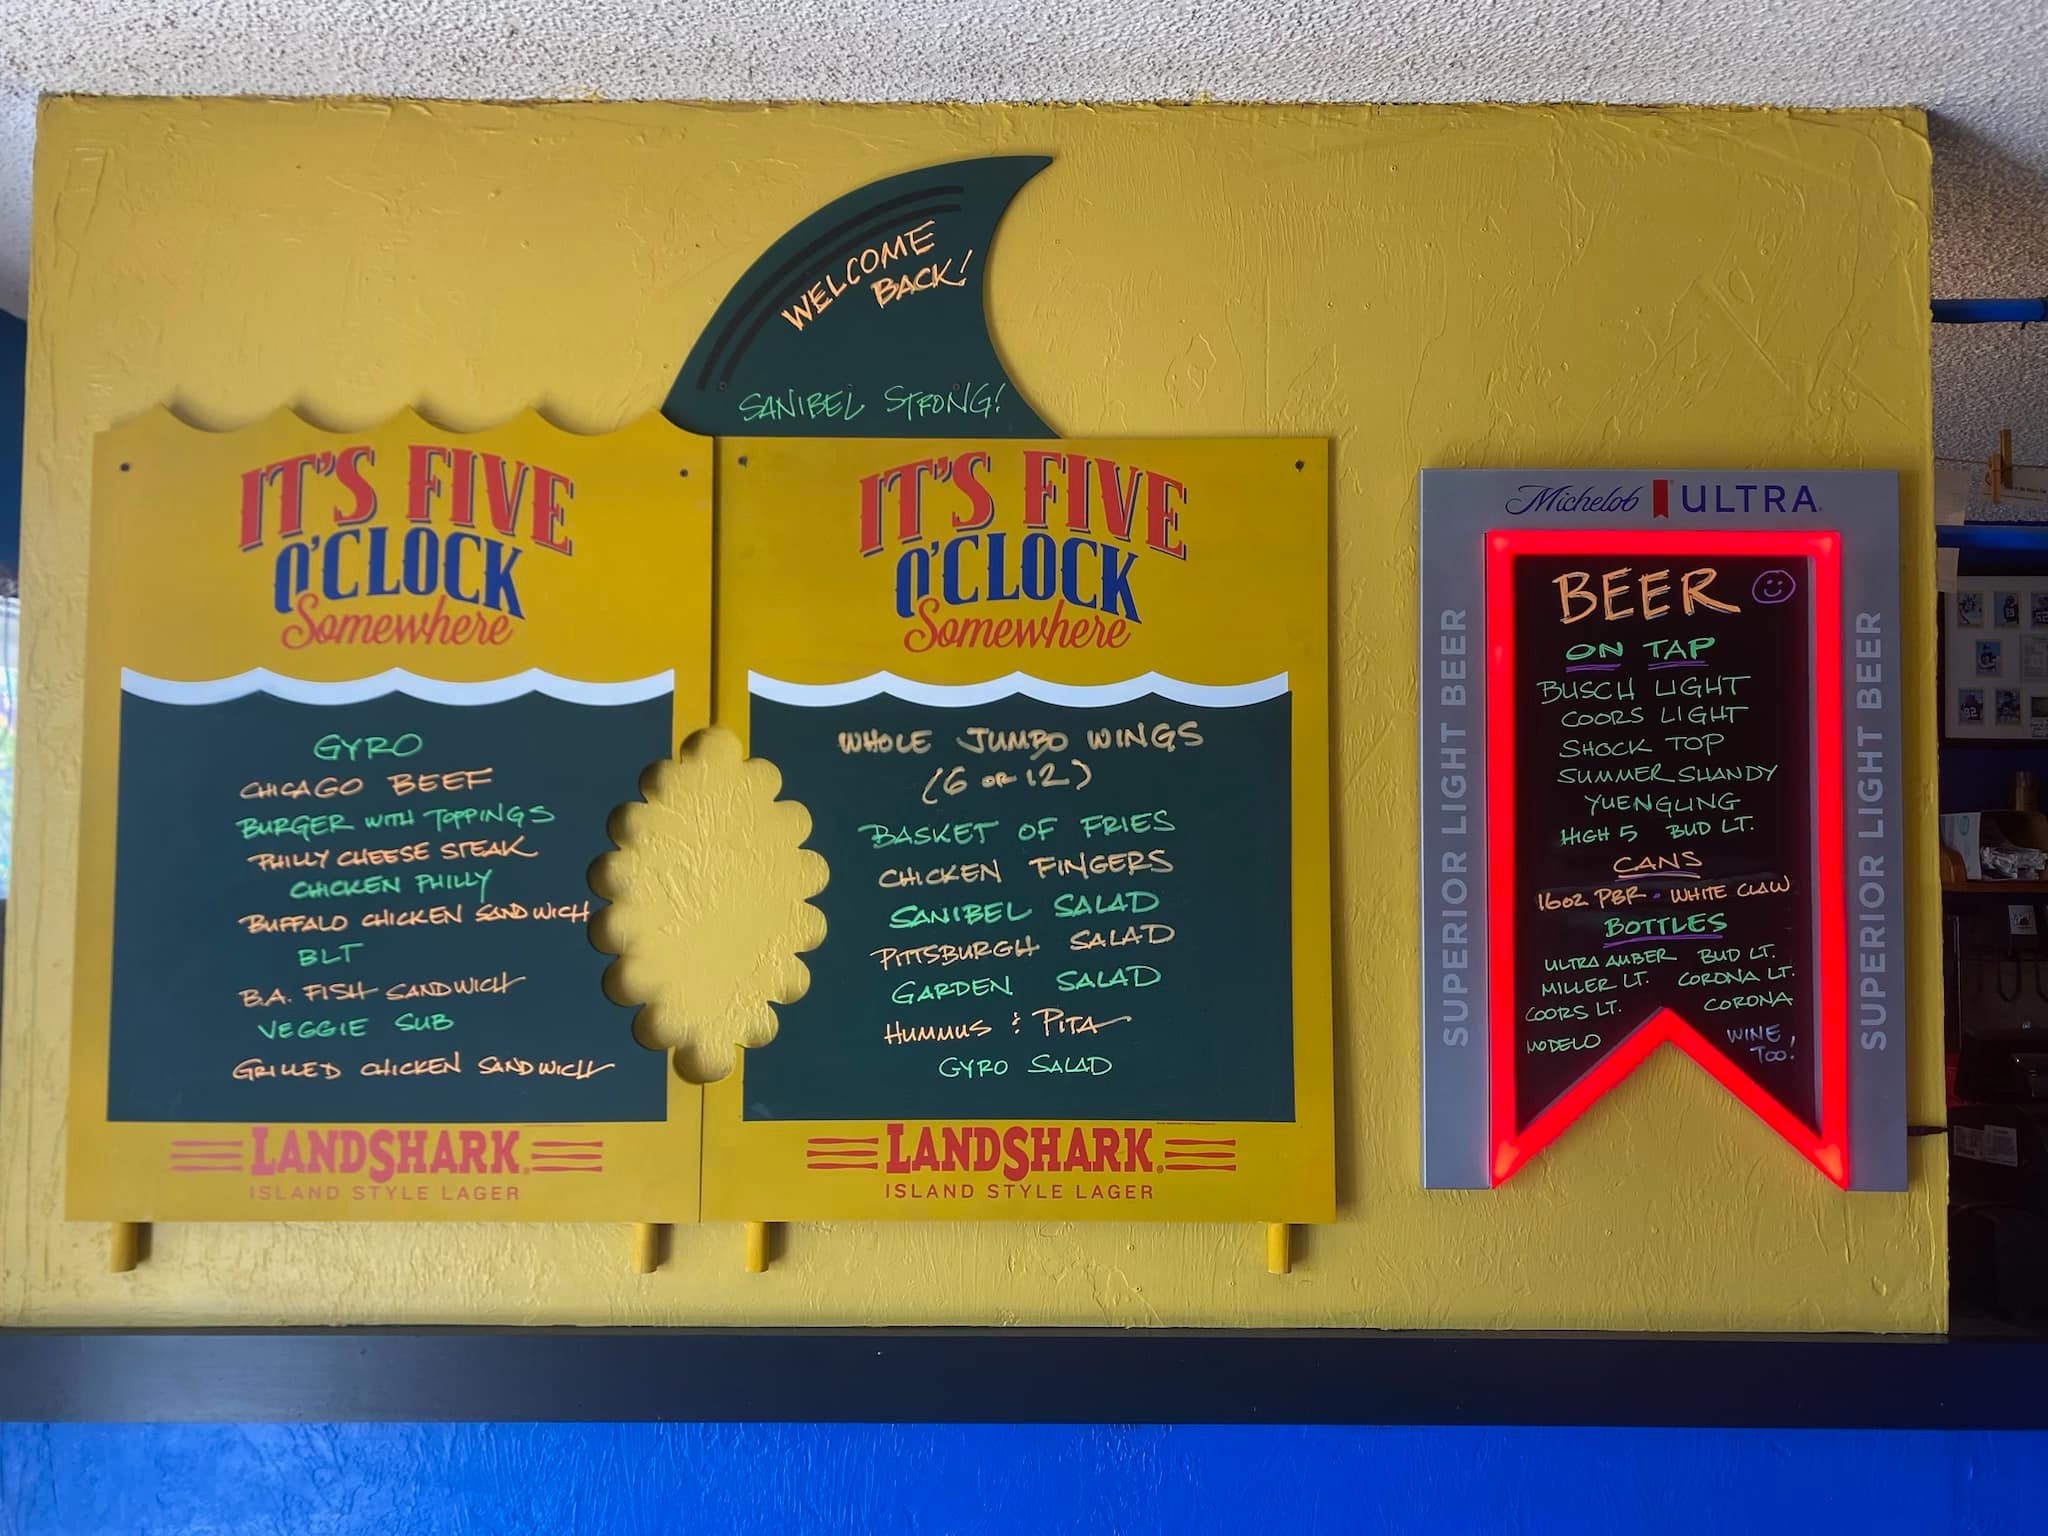 WELCOME
BACK!
SANIBEL STRONG!
IT'S FIVE
O'CLOCK
Somewhere
GYRO
CHICAGO BEEF
BURGER WITH TOPPINGS
PHILLY CHEESE STEAK
CHICKEN PHILLY
BUFFALO CHICKEN SANDWICH
BLT
B.A. FISH SANDWICH
VEGGIE SUB
GRILLED CHICKEN SANDWICH
LANDSHARK
ISLAND STYLE LAGER
IT'S FIVE
O'CLOCK
Somewhere
WHOLE JUMBO WINGS
(6 OR 12)
BASKET OF FRIES
CHICKEN FINGERS
SANIBEL SALAD
PITTSBURGH SALAD
GARDEN SALAD
HUMMUS & PITA
GYRO SALAD
LANDSHARK
ISLAND STYLE LAGER
Michelob ULTRA
SUPERIOR LIGHT BEER
BEER
ON TAP
BUSCH LIGHT
COORS LIGHT
SHOCK TOP
SUMMER SHANDY
YUENGLING
HIGH 5 BUD LT.
CANS
16OZ PBR - WHITE CLAW
BOTTLES
ULTRA AMBER BUD LT.
MILLER LT. CORONA LT.
COORS LT. CORONA
MODELO WINE
TOO!
SUPERIOR LIGHT BEER